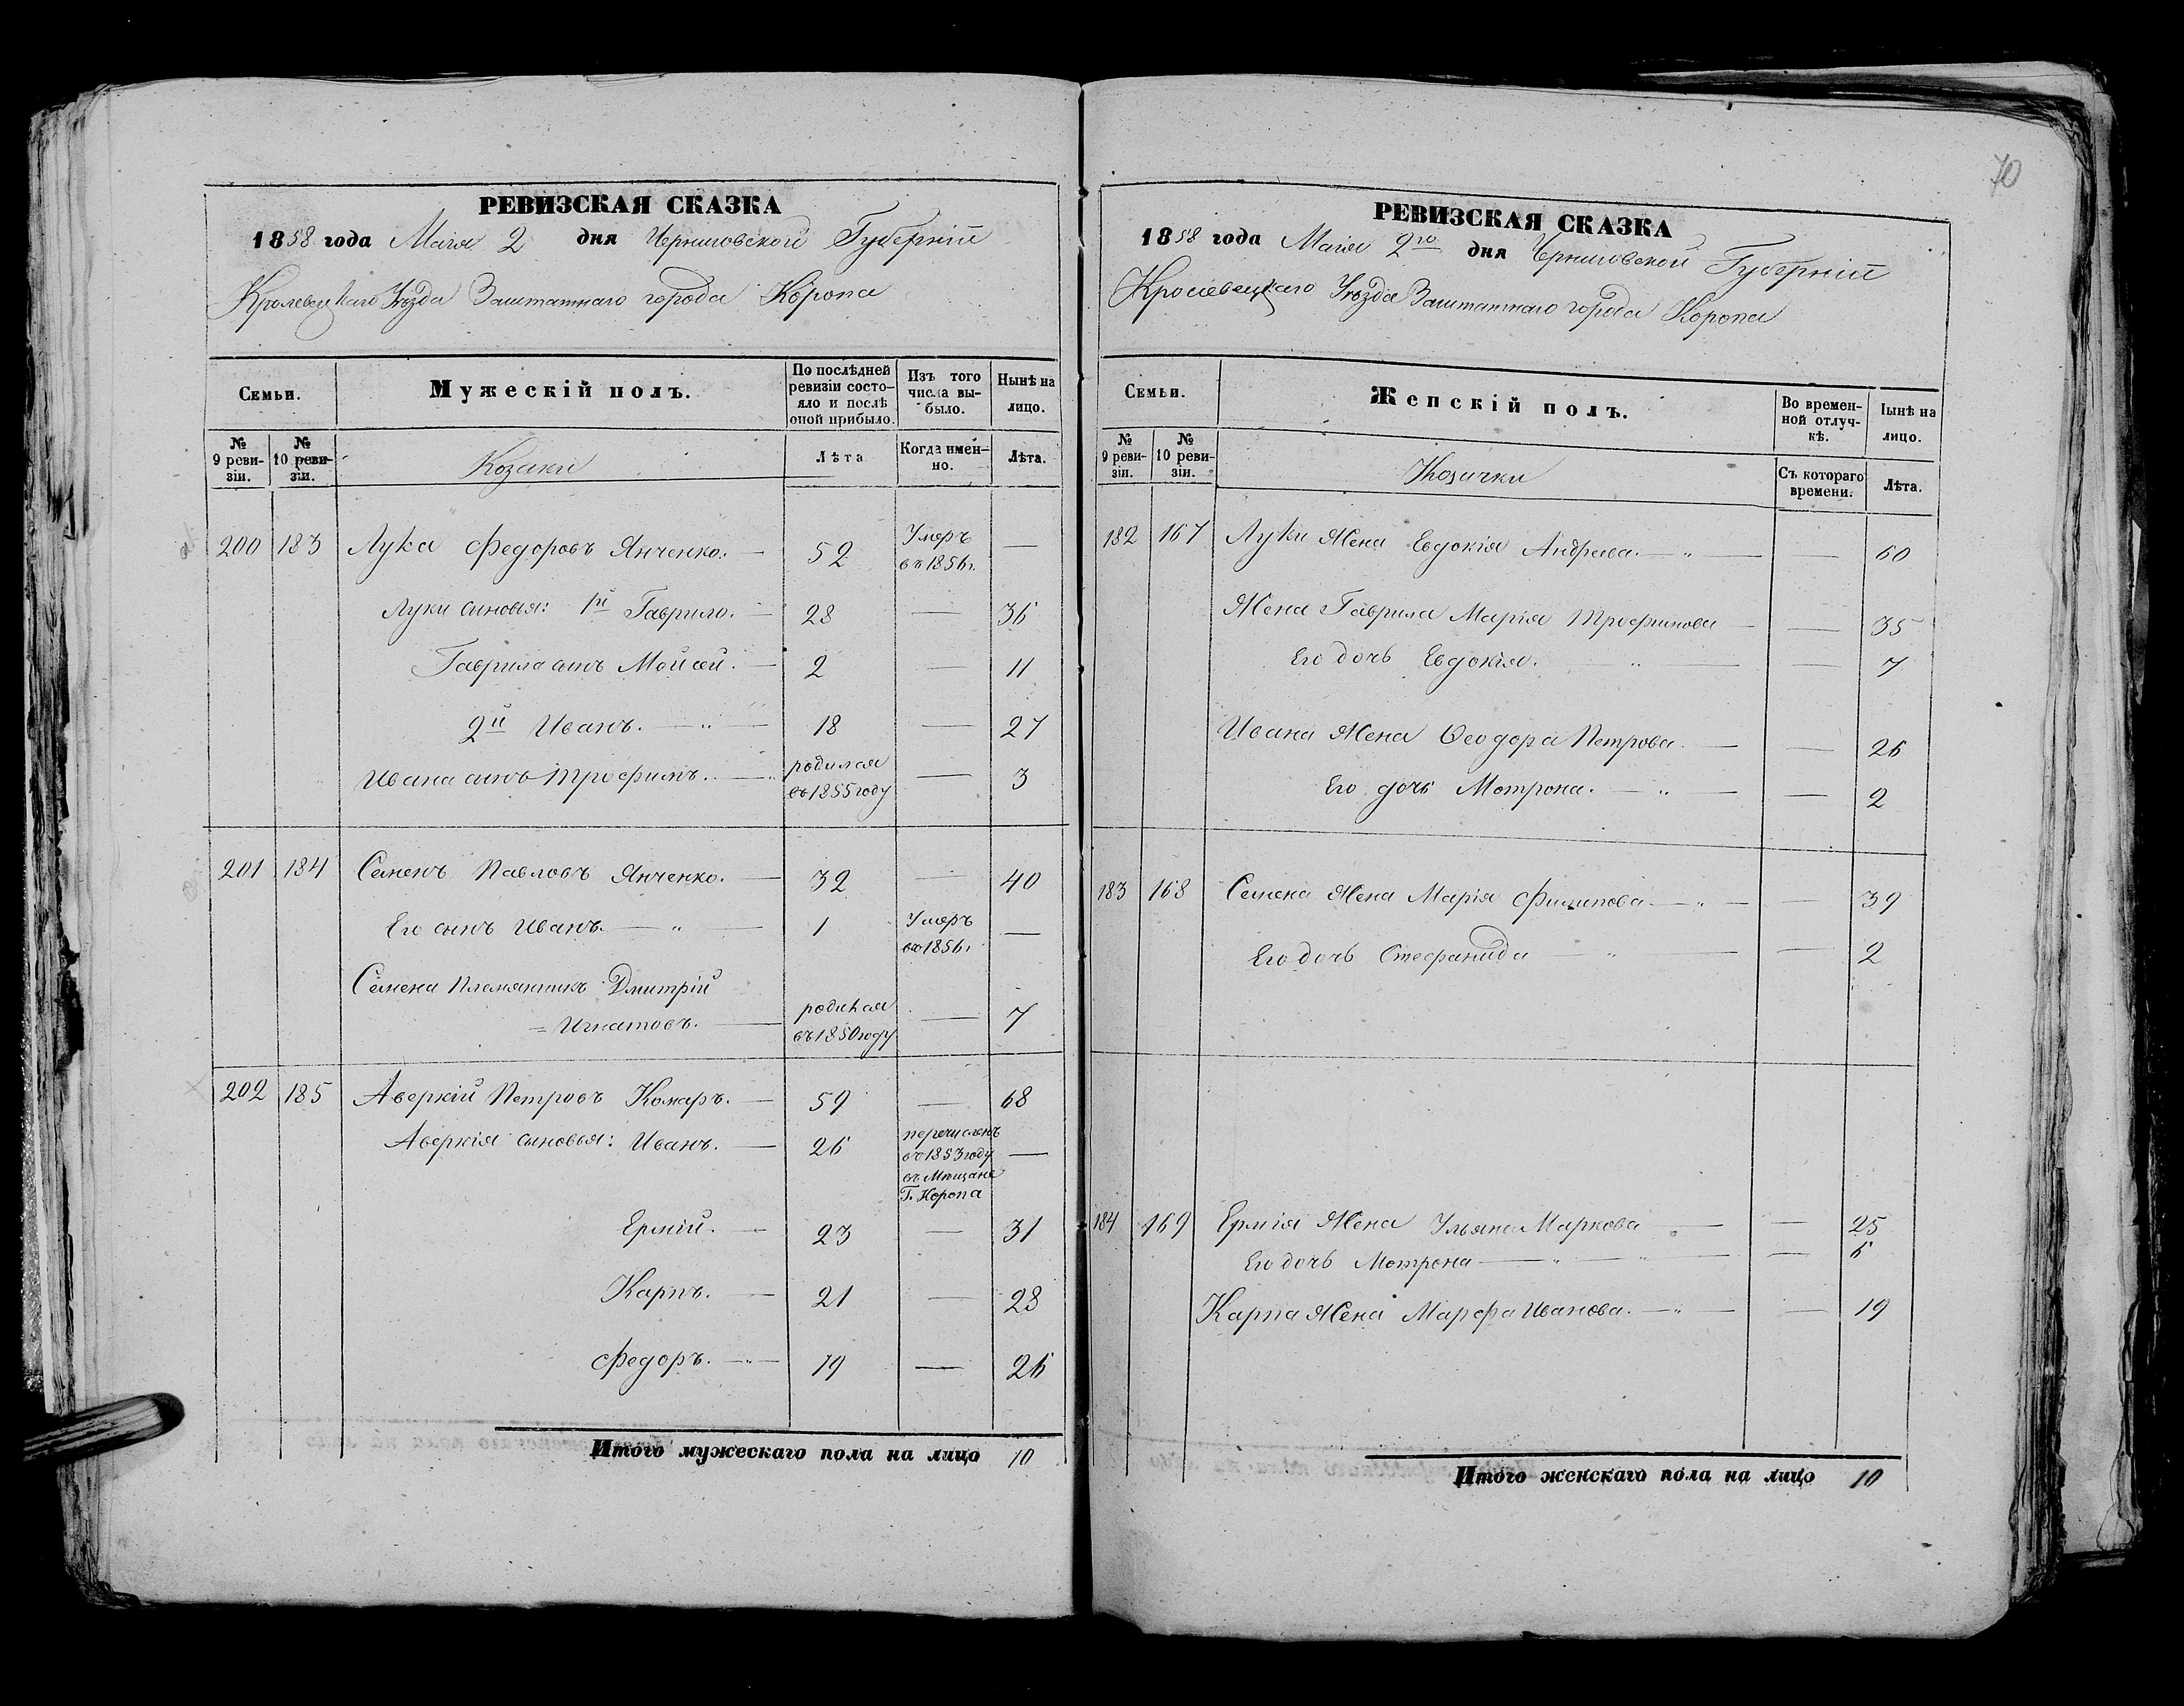 РЕВИЗСКАЯ СКАЗКА
1858 года Маія 2 дня Черниговской Губерніи
Кролевецкаго Уѣзда Заштатнаго города Коропа
Семьи.
Мужескій полъ.
По послѣдней ревизіи состо-
яло и послѣ оной прибыло.
Изъ того числа вы-
было.
Нынѣ на лицо.
№ 9 реви-
зіи.
№ 10 реви-
зіи.
Козаки
Лѣта
Когда имен-
но.
Лѣта.
200 183 Лука Федоровъ Янченко. — 52 Умеръ въ 1856 г. —
Луки сыновья: 1й Гаврило. — 28 — 36
Гаврила сынъ Мойсей. — 2 — 11
2й Иванъ. — „ — 18 — 27
Ивана сынъ Трофимъ. — „ родился въ 1855 году — 3
201 184 Семенъ Павловъ Янченко. — 32 — 40
Его сынъ Иванъ. — „ — 1 Умеръ въ 1856 г. —
Семена племянникъ Дмитрій
= Игнатовъ. — родился въ 1850 году — 7
202 185 Аверкій Петровъ Комаръ. — 59 — 68
Аверкія сыновья: Иванъ. — 26 перечисленъ въ 1853 году въ Мѣщане Г. Коропа —
Ермій. — 23 — 31
Карпъ. — 21 — 28
Федоръ. — „ — 19 — 26
Итого мужескаго пола на лицо 10
70
РЕВИЗСКАЯ СКАЗКА
1858 года Маія 2го дня Черниговской Губерніи
Кролевецкаго Уѣзда Заштатнаго города Коропа
Семьи.
Женскій полъ.
Во времен-
ной отлуч-
кѣ.
Нынѣ на лицо.
№ 9 реви-
зіи.
№ 10 реви-
зіи.
Козачки
Съ котораго времени.
Лѣта.
182 167 Луки Жена Евдокія Андреева. — „ — — 60
Жена Гаврила Марія Трофимова — — 35
Его дочь Евдокія. „ — — 7
Ивана Жена Ѳеодора Петрова. — — 26
Его дочь Мотрона. — „ — — 2
183 168 Семена Жена Марія Филипова — „ — — 39
Его дочь Стефанида — „ — — 2
184 169 Ермія Жена Ульяна Маркова „ — — 25
Его дочь Мотрона — „ — „ — — 6
Карпа Жена Марфа Иванова. — „ — — 19
Итого женскаго пола на лицо 10